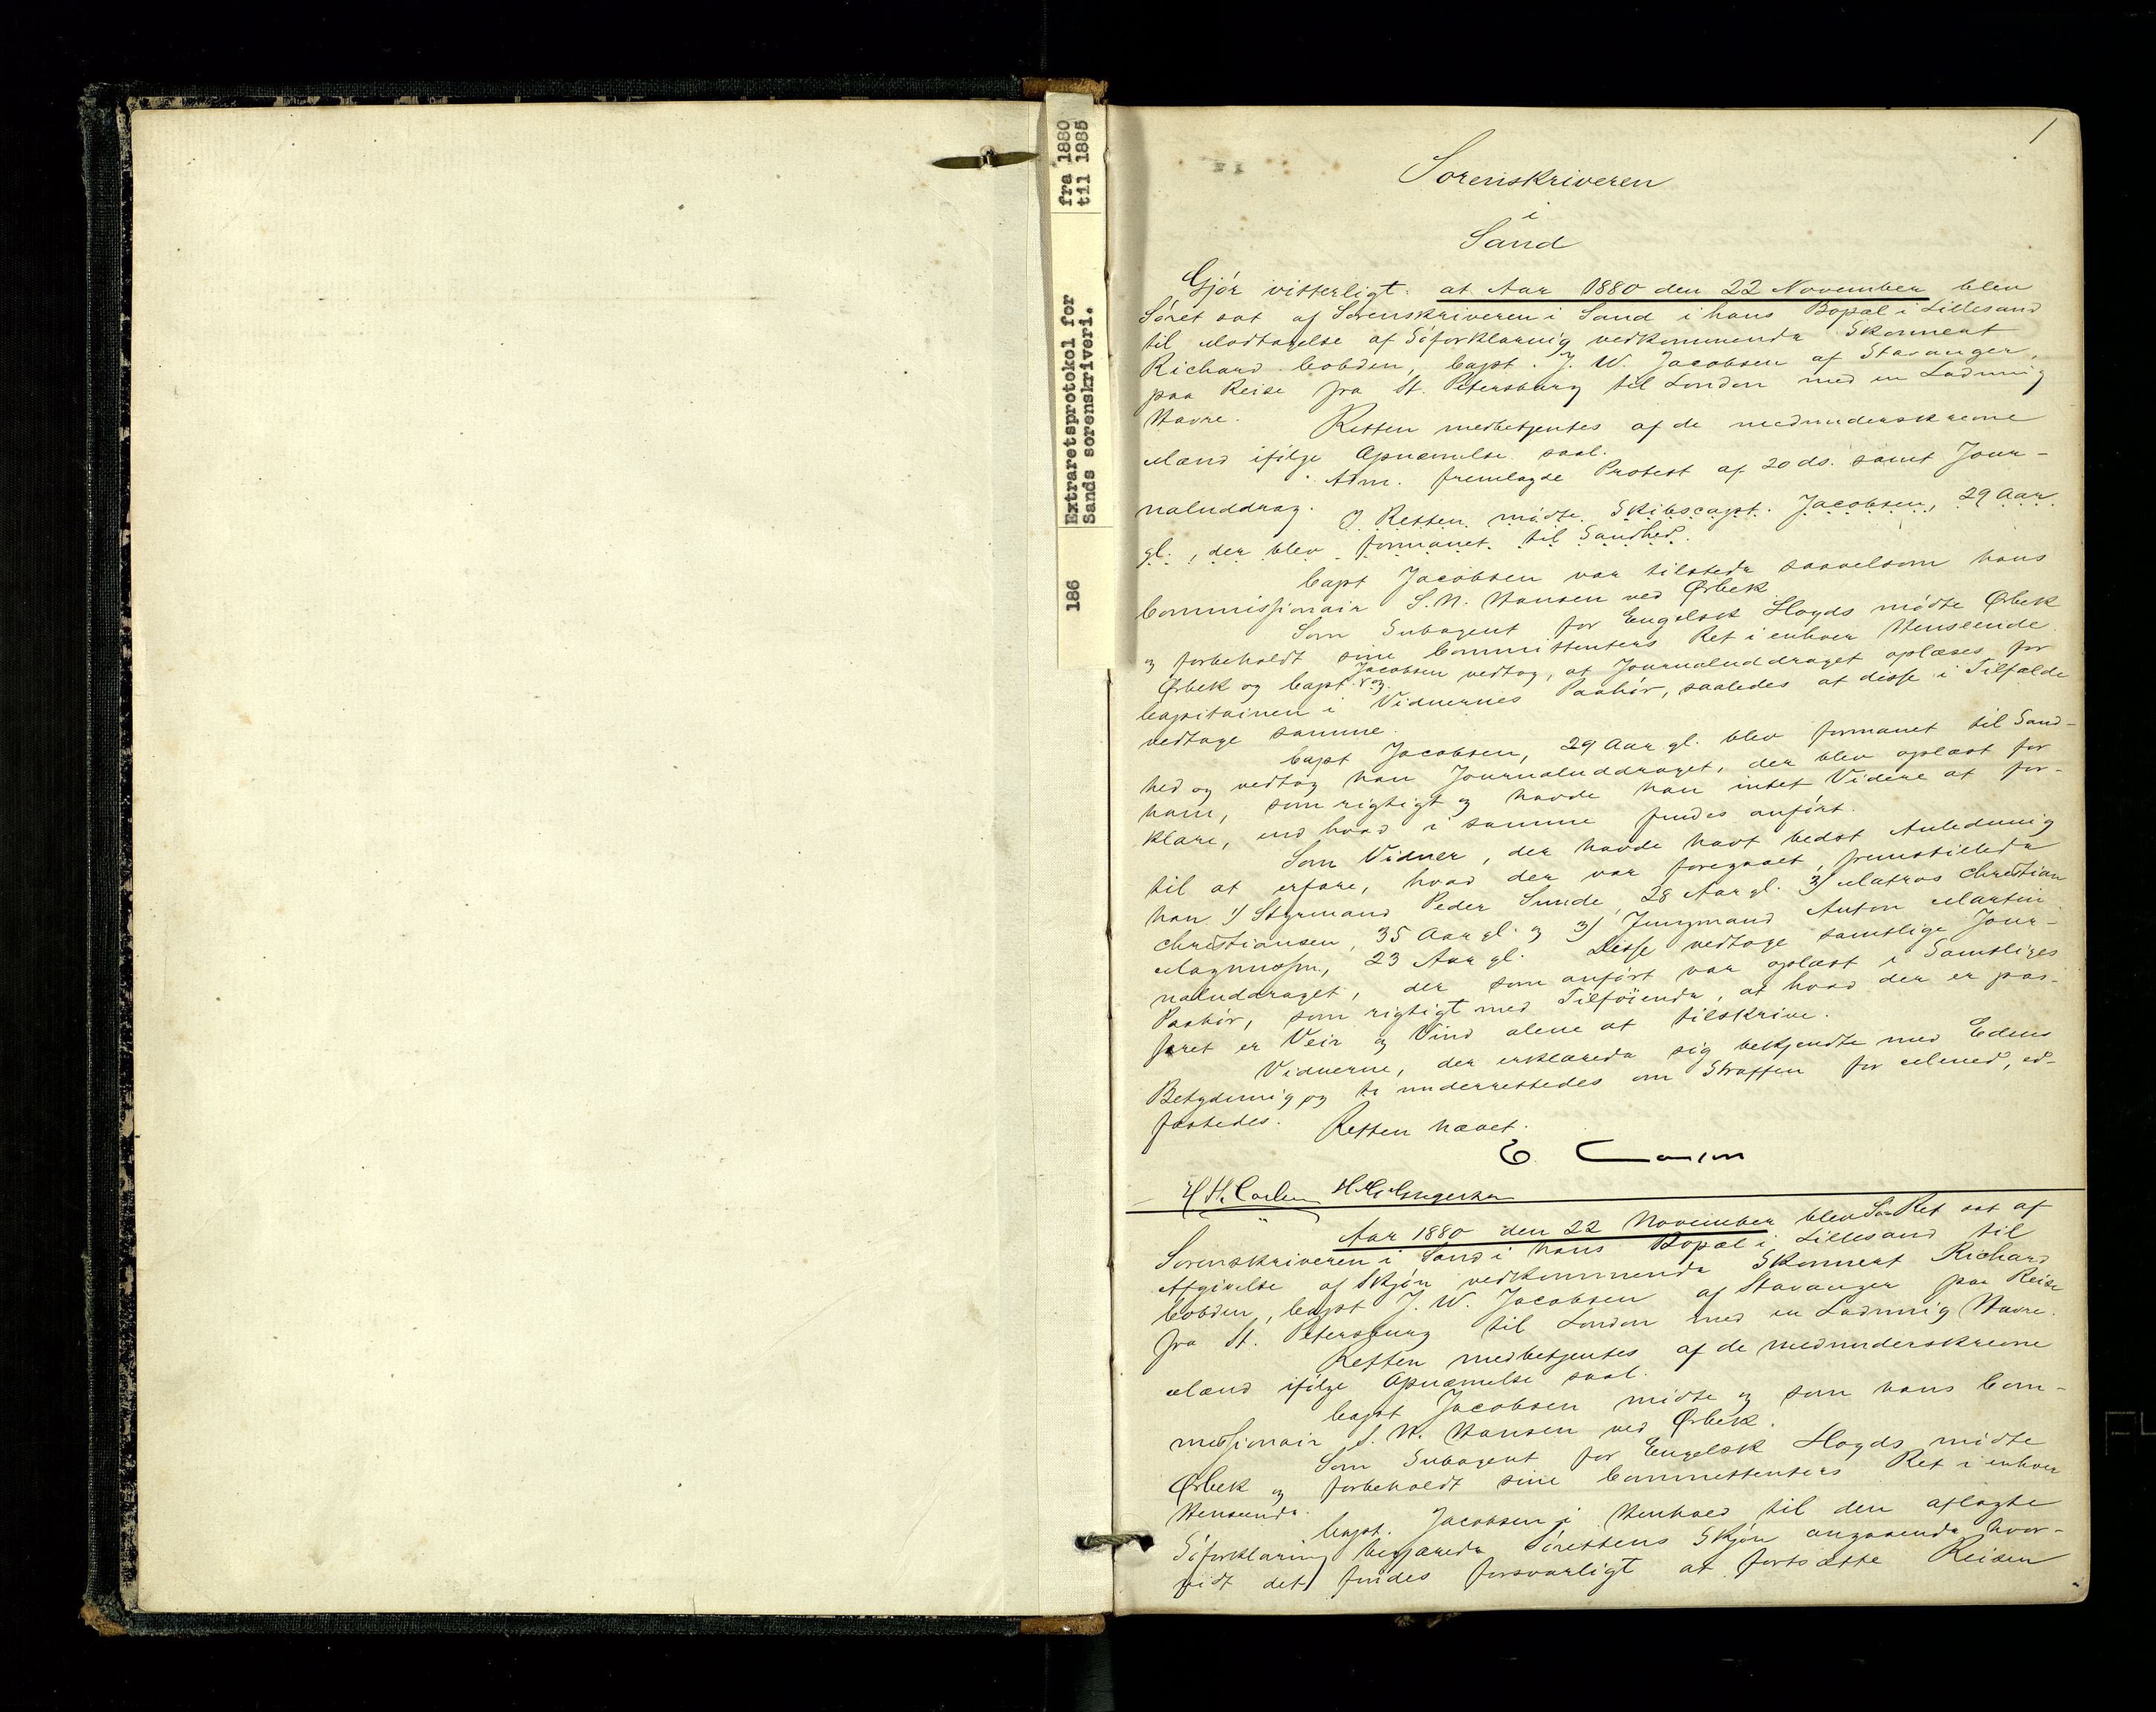 fra 1880
til 1885
Extraretsprotokol for
Sands sorenskriveri.
186
1
Sorenskriveren
i
Sand
Gjör vitterligt: at Aar 1880 den 22 November blev
Söret sat af Sorenskriveren i Sand i hans Bopæl i Lillesand
til Modtagelse af Söforklaring vedkommende Skonnert
Richard Cobden, Capt. J. W. Jacobsen af Stavanger,
paa Reise fra St. Petersburg til London med en Ladning
Havre. Retten medbetjentes af de medunderskrevne
Mænd ifölge Opnævnelse saal.
Adm. fremlagde Protest af 20 ds. samt Jour-
naluddrag. I Retten mödte Skibscapt. Jacobsen, 29 Aar
gl., der blev formanet til Sandhed.
Capt Jacobsen var tilstede saavelsom hans
Commissionair S. N. Hansen ved Ørbek.
Som Subagent for Engelsk Lloyds mödte Ørbek
og forbeholdt sine Committenters Ret i enhver Henseende.
Ørbek og Capt. Jacobsen vedtog, at Journaluddraget oplæses for
Capitainen i Vidnernes Paahör, saaledes at disse i Tilfælde
vedtage samme.
Capt Jacobsen, 29 Aar gl. blev formanet til Sand-
hed og vedtog han Journaluddraget, der blev oplæst for
ham, som rigtigt og havde han intet Videre at for-
klare, end hvad i samme findes anfört.
Som Vidner, der havde havt bedst Anledning
til at erfare, hvad der var foregaaet, fremstillede
han 1/ Styrmand Peder Sunde, 28 Aar gl. 2/ Matros Christian
Christiansen, 35 Aar gl. og 3/ Jungmand Anton Martin
Magnussen, 23 Aar gl. Disse vedtoge samtlige Jour-
naluddraget, der som anfört var oplæst i Samtliges
Paahör, som rigtigt med Tilföiende, at hvad der er pas-
seret er Veir og Vind alene at tilskrive.
Vidnerne, der erklærede sig bekjendte med Edens
Betydning og underrettedes om Straffen for Mened, ed-
fæstedes. Retten hævet.
E.
H. H. Carlsen
Aar 1880 den 22 November blev SöRet sat af
Sorenskriveren i Sand i hans Bopæl i Lillesand til
Afgivelse af Skjön vedkommende Skonnert Richard
Cobden, Capt J. W. Jacobsen af Stavanger paa Reise
fra St. Petersburg til London med en Ladning Havre.
Retten medbetjentes af de medunderskrevne
Mænd ifölge Opnævnelse saal.
Capt Jacobsen mödte og som hans Com-
missionair S. N. Hansen ved Ørbek.
Som Subagent for Engelsk Lloyds mödte
Ørbek og forbeholdt sine Committenters Ret i enhver
Henseende.
Capt. Jacobsen i Henhold til den aflagte
Söforklaring begjærede Sörettens Skjön angaaende hvor-
vidt det findes forsvarligt at fortsætte Reisen